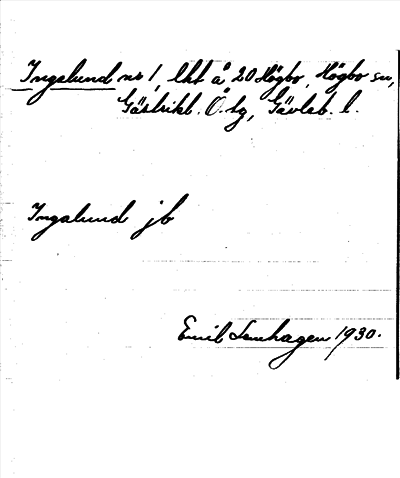 Ingalund nr 1, lht å 20 Högbo, Högbo sn,
Gästrikl. Ö. tg, Gävleb. l.
Ingalund jb
Emil Lenhagen 1930.